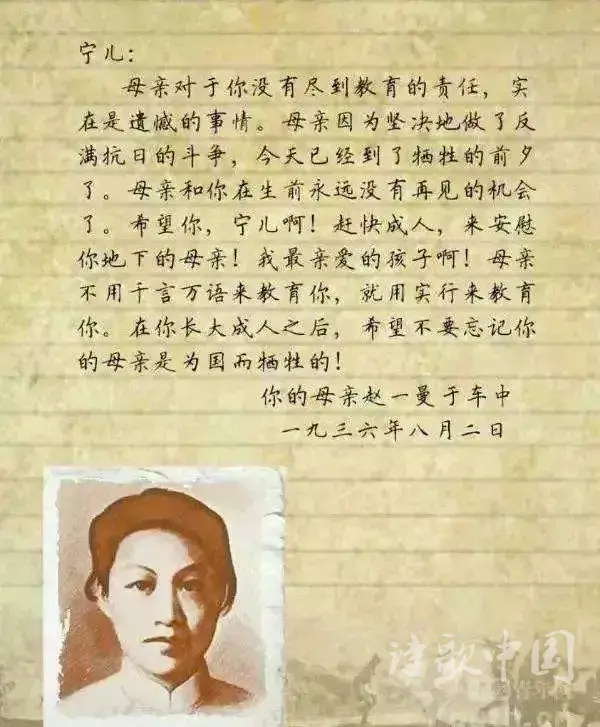 宁儿：
母亲对于你没有尽到教育的责任，实
在是遗憾的事情。母亲因为坚决地做了反
满抗日的斗争，今天已经到了牺牲的前夕
了。母亲和你在生前永远没有再见的机会
了。希望你，宁儿啊！赶快成人，来安慰
你地下的母亲！我最亲爱的孩子啊！母亲
不用千言万语来教育你，就用实行来教育
你。在你长大成人之后，希望不要忘记你
的母亲是为国而牺牲的！
你的母亲赵一曼于车中
一九三六年八月二日
诗歌中国